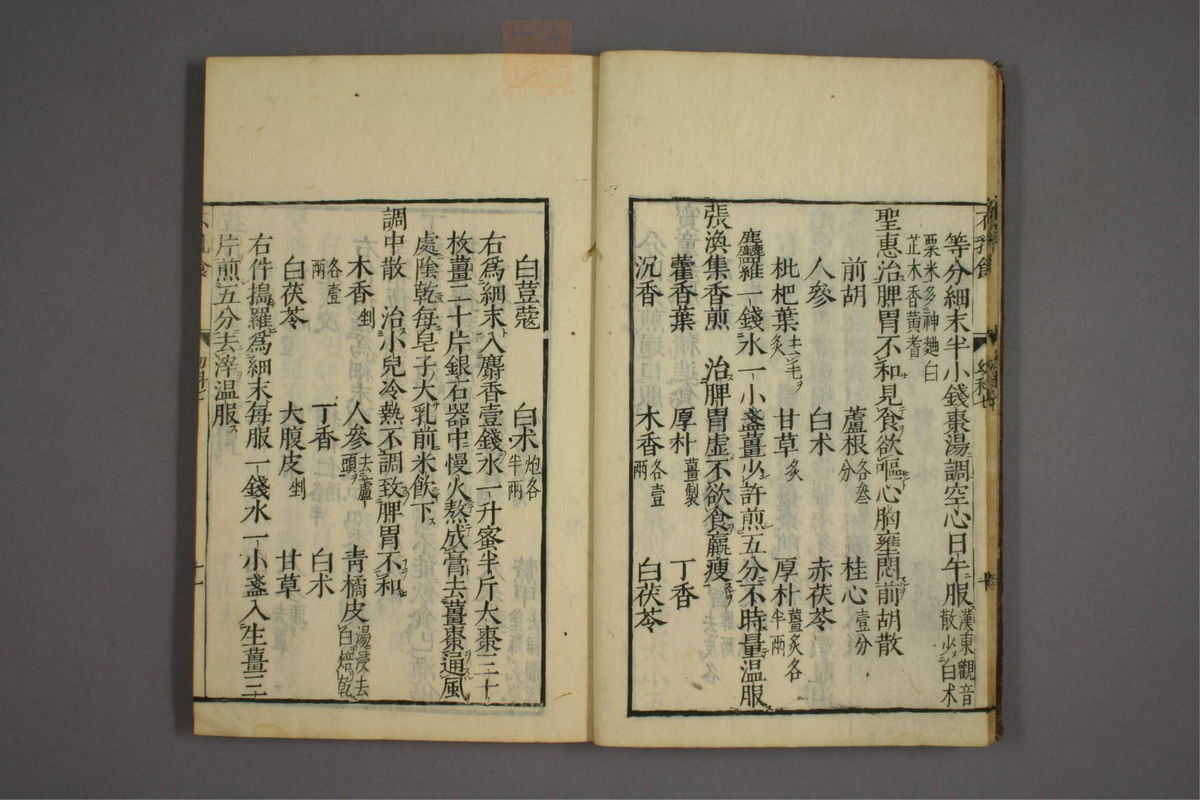 等分細末半小錢棗湯調空心日午服漢東觀音散少白术
粟米多神麯白芷木香黃耆
聖惠治脾胃不和見食欲嘔心胸壅悶前胡散
前胡 蘆根各叁分 桂心壹分
人參 白术 赤茯苓
枇杷葉去毛炙 甘草炙 厚朴薑炙各半兩
麤羅一錢水一小盞薑少許煎五分不時量温服
張渙集香煎 治脾胃虛不欲食羸瘦
藿香葉 厚朴薑製 丁香
沉香 木香各壹兩 白茯苓
白荳蔻 白术炮各半兩
右爲細末入麝香壹錢水一升蜜半斤大棗三十
枚薑二十片銀石器中慢火熬成膏去薑棗通風
處陰乾每皂子大乳前米飲下
調中散 治小兒冷熱不調致脾胃不和
木香剉各壹兩 人參去蘆頭 青橘皮湯浸去白焙乾
丁香 白术
白茯苓 大腹皮剉 甘草
右件搗羅爲細末每服一錢水一小盞入生薑三
片煎五分去滓温服